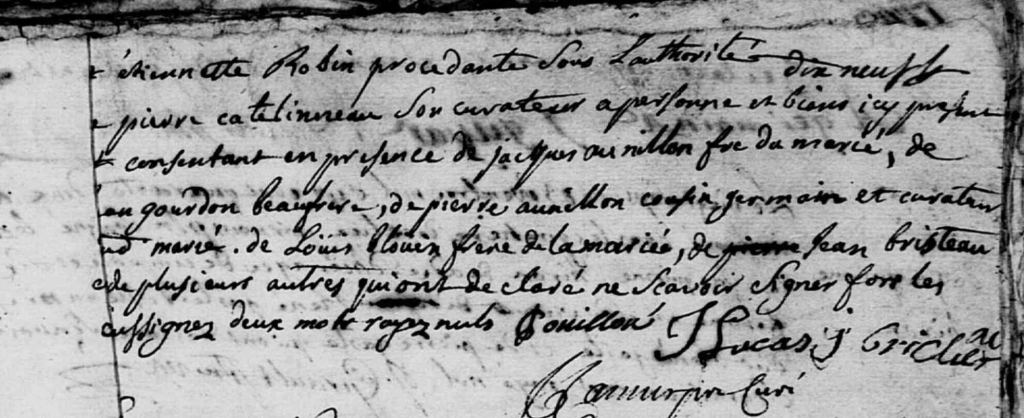 étiennette Robin procedante sous l'authorité dix neuf
pierre catelinneau son curateur a personne et biens icy present
et consentant en presence de jacques aunillon fre du marié, de
gourdon beaufrere, de pierre aunillon cousin germain et curateur
ud marié. de Loüis frere de la mariée, de pierre Jean bristeau
de plusieurs autres qui ont declaré ne scavoir signer fors les
sussignez deux mots rayez nuls
curé